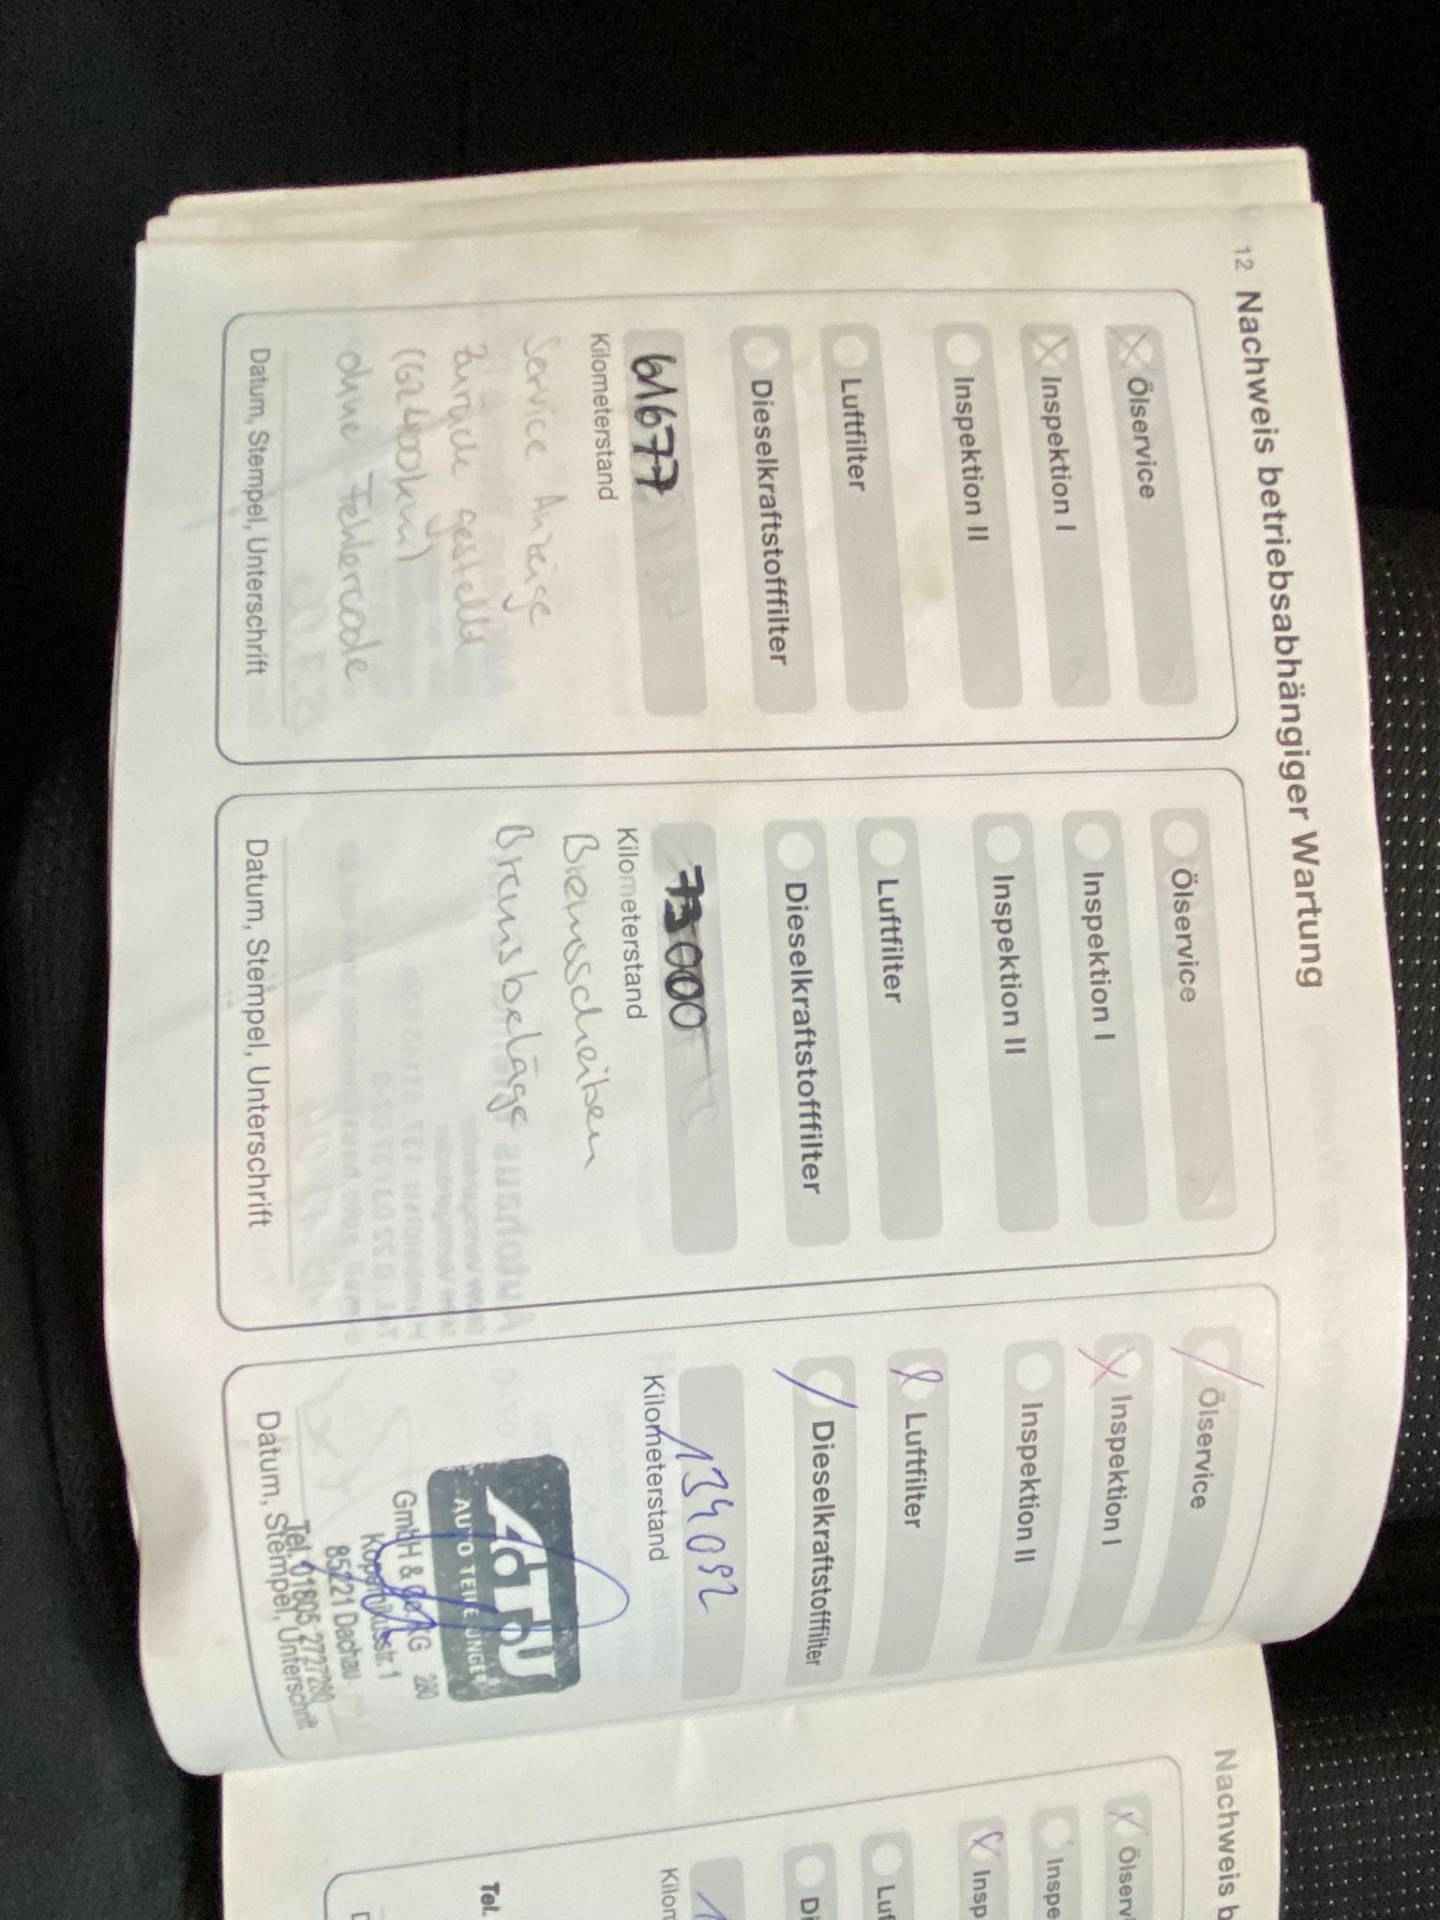 12 Nachweis betriebsabhängiger Wartung
Ölservice
Inspektion I
Inspektion II
Luftfilter
Dieselkraftstofffilter
61677
Kilometerstand
Service Anzeige
zurück gestellt
(62400km)
ohne Fehlercode
Datum, Stempel, Unterschrift
Ölservice
Inspektion I
Inspektion II
Luftfilter
Dieselkraftstofffilter
73000
Kilometerstand
Bremsscheiben
Bremsbeläge
Datum, Stempel, Unterschrift
Ölservice
Inspektion I
Inspektion II
Luftfilter
Dieselkraftstofffilter
134092
Kilometerstand
A.T.U
AUTO TEILE UNGER
GmbH & Co. KG 280
Kopernikusstr. 1
85221 Dachau
Tel. 01805 272780
Datum, Stempel, Unterschrift
Nachweis b
Ölserv
Inspe
Insp
Luf
Di
1
Kilom
Tel.
D